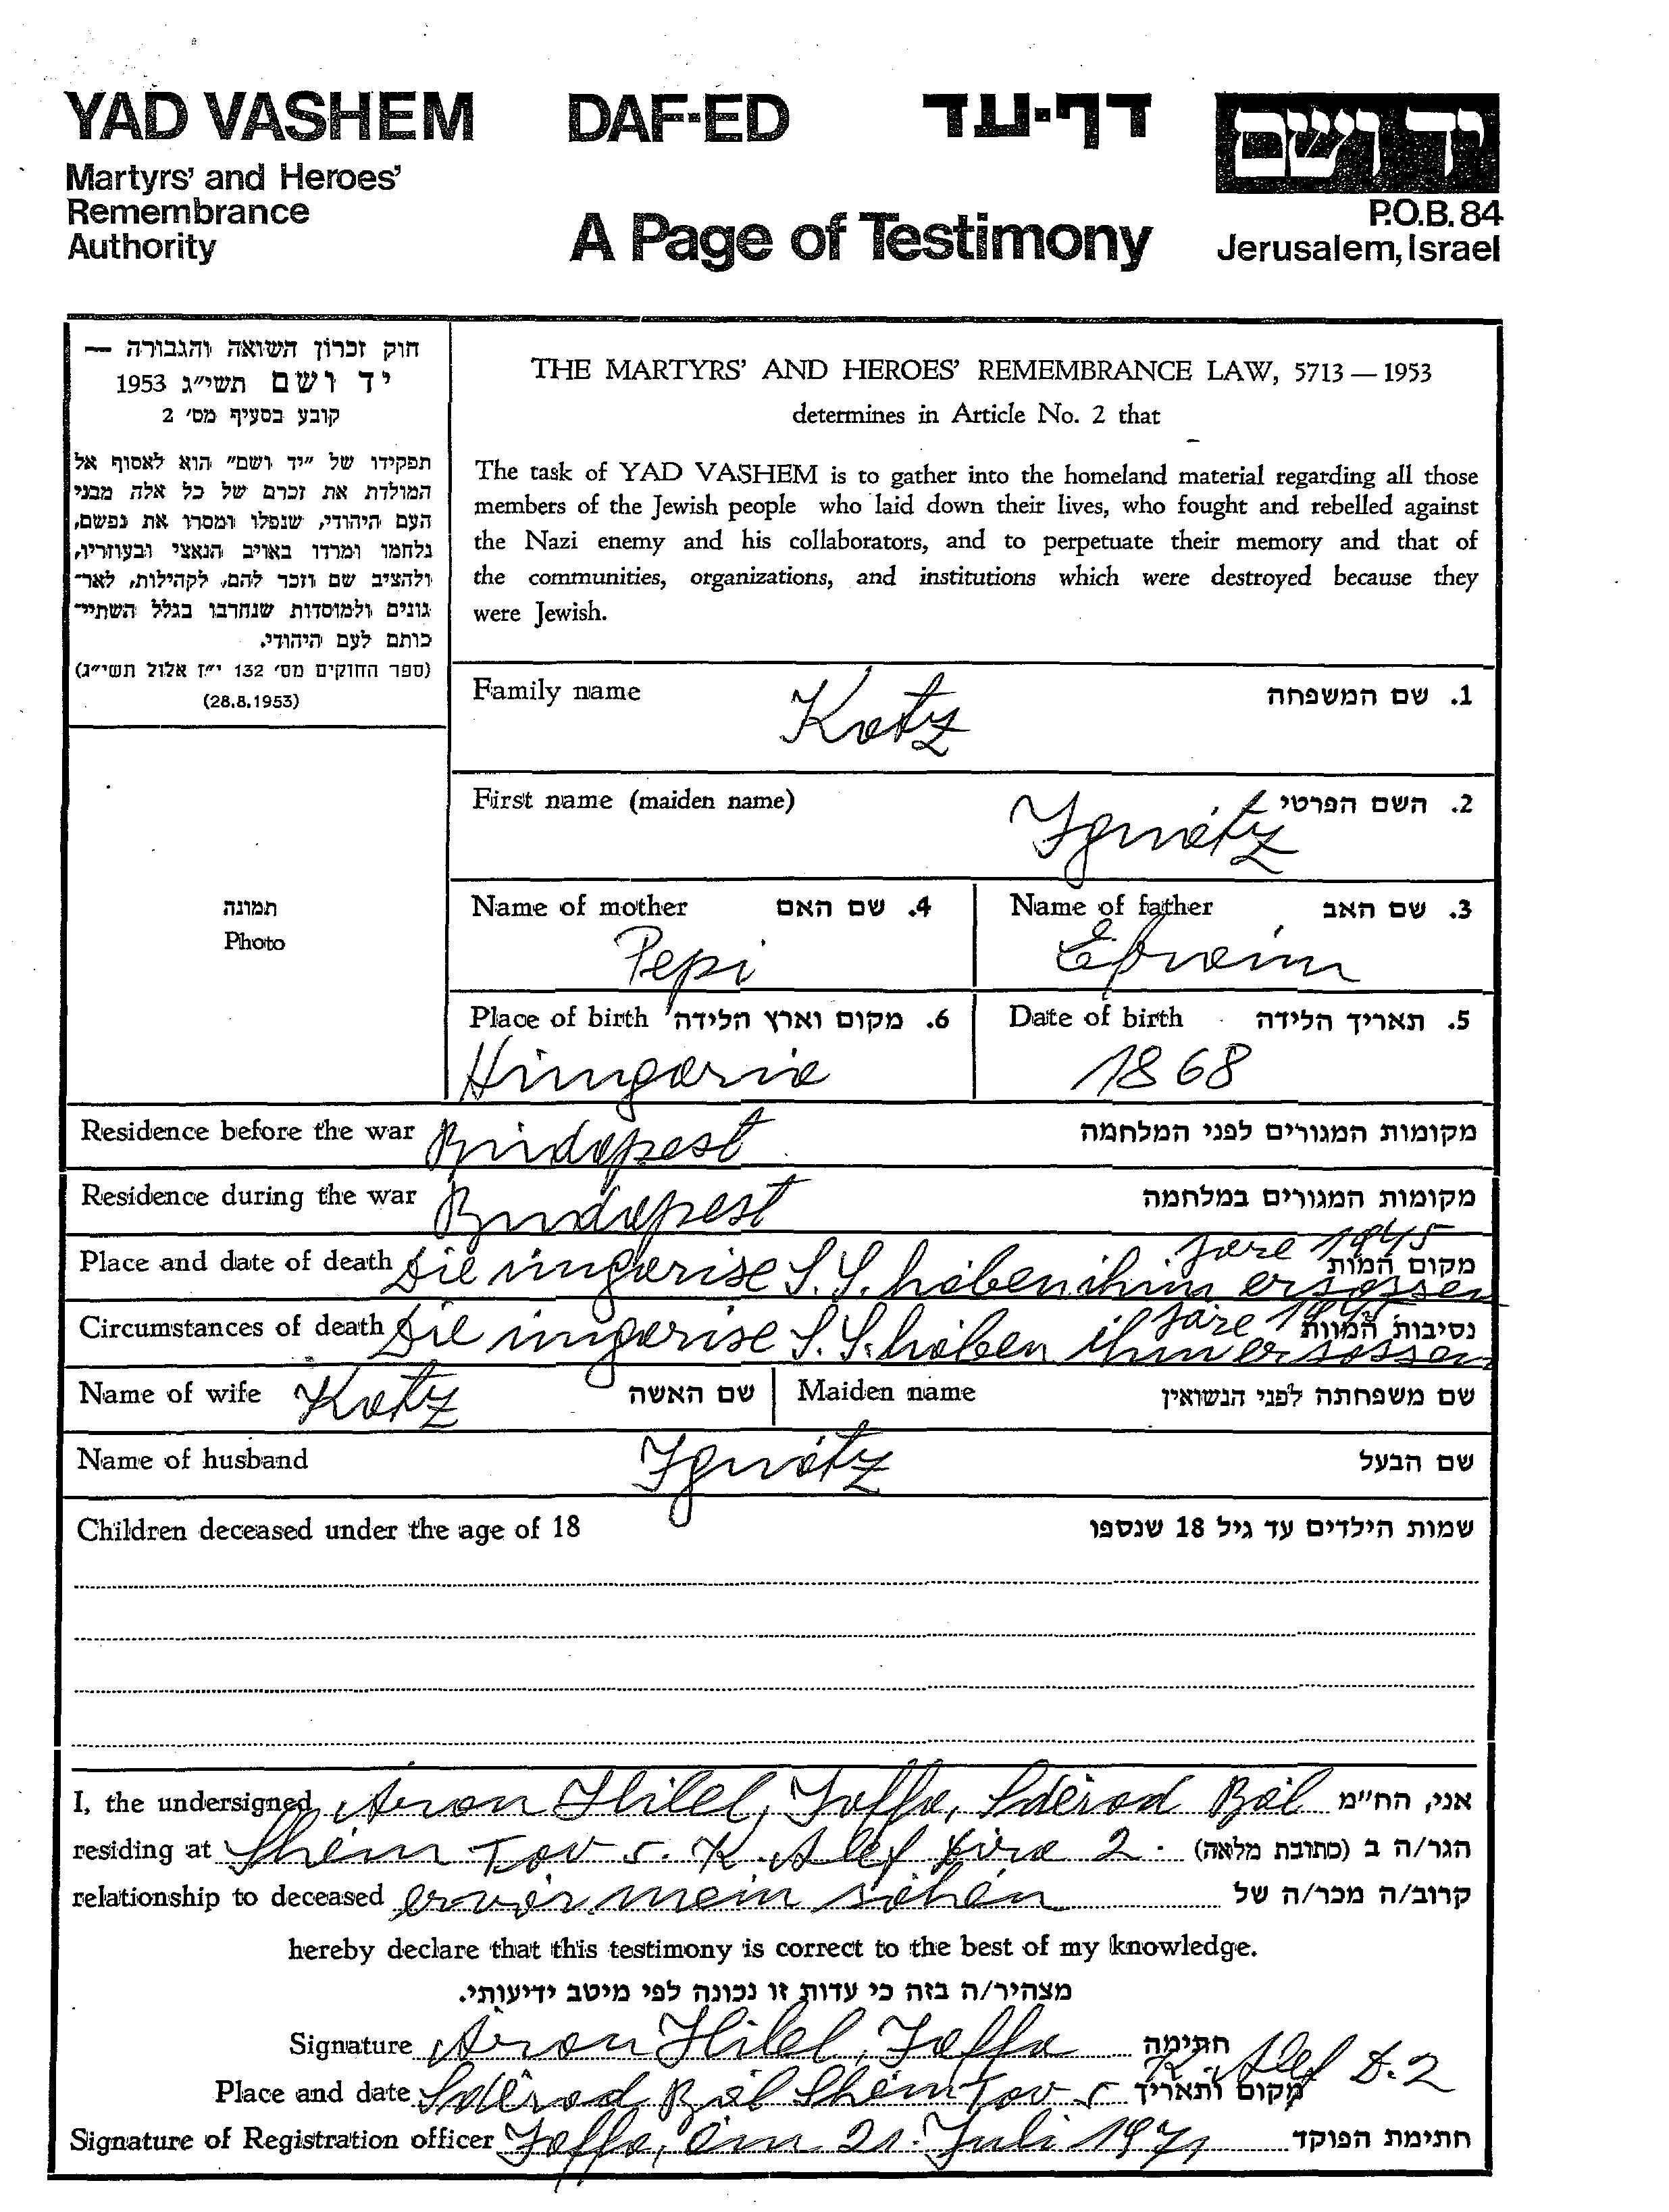 YAD VASHEM DAF-ED דף-עד יד ושם
Martyrs' and Heroes'
Remembrance
Authority
A Page of Testimony
P.O.B. 84
Jerusalem, Israel
חוק זכרון השואה והגבורה —
יד ושם תשי״ג 1953
קובע בסעיף מס׳ 2
תפקידו של ״יד ושם״ הוא לאסוף אל
המולדת את זכרם של כל אלה מבני
העם היהודי, שנפלו ומסרו את נפשם,
נלחמו ומרדו באויב הנאצי ובעוזריו,
ולהציב שם וזכר להם, לקהילות, לאר־
גונים ולמוסדות שנחרבו בגלל השתיי־
כותם לעם היהודי.
(ספר החוקים מס׳ 132 י״ז אלול תשי״ג)
(28.8.1953)
THE MARTYRS' AND HEROES' REMEMBRANCE LAW, 5713 — 1953
determines in Article No. 2 that
The task of YAD VASHEM is to gather into the homeland material regarding all those
members of the Jewish people who laid down their lives, who fought and rebelled against
the Nazi enemy and his collaborators, and to perpetuate their memory and that of
the communities, organizations, and institutions which were destroyed because they
were Jewish.
Family name Katz 1. שם המשפחה
First name (maiden name) Ignátz 2. השם הפרטי
תמונה
Photo
Name of mother 4. שם האם Name of father 3. שם האב
Pepi Efraim
Place of birth 6. מקום וארץ הלידה Date of birth 5. תאריך הלידה
Hungaria 1868
Residence before the war Budapest מקומות המגורים לפני המלחמה
Residence during the war Budapest מקומות המגורים במלחמה
Place and date of death Die ungarise S.S. haben ihm ersossen jare 1945 מקום המות
Circumstances of death Die ungarise S.S. haben ihm ersossen jare 1945 נסיבות המוות
Name of wife Katz שם האשה Maiden name שם משפחתה לפני הנשואין
Name of husband Ignátz שם הבעל
Children deceased under the age of 18 שמות הילדים עד גיל 18 שנספו
I, the undersigned Aron Hilel, Jaffa, Sdérod Bál אני, הח״מ
residing at Shém Tov 5. K. Alef Dira 2. הגר/ה ב (כתובת מלאה)
relationship to deceased er vár mein sohén קרוב/ה מכר/ה של
hereby declare that this testimony is correct to the best of my knowledge.
מצהיר/ה בזה כי עדות זו נכונה לפי מיטב ידיעותי.
Signature Aron Hilel, Jaffa חתימה
Place and date Sdérod Bál Shém Tov 5 K. Alef D. 2 מקום ותאריך
Signature of Registration officer Jaffa, am 21. Juli 1971 חתימת הפוקד